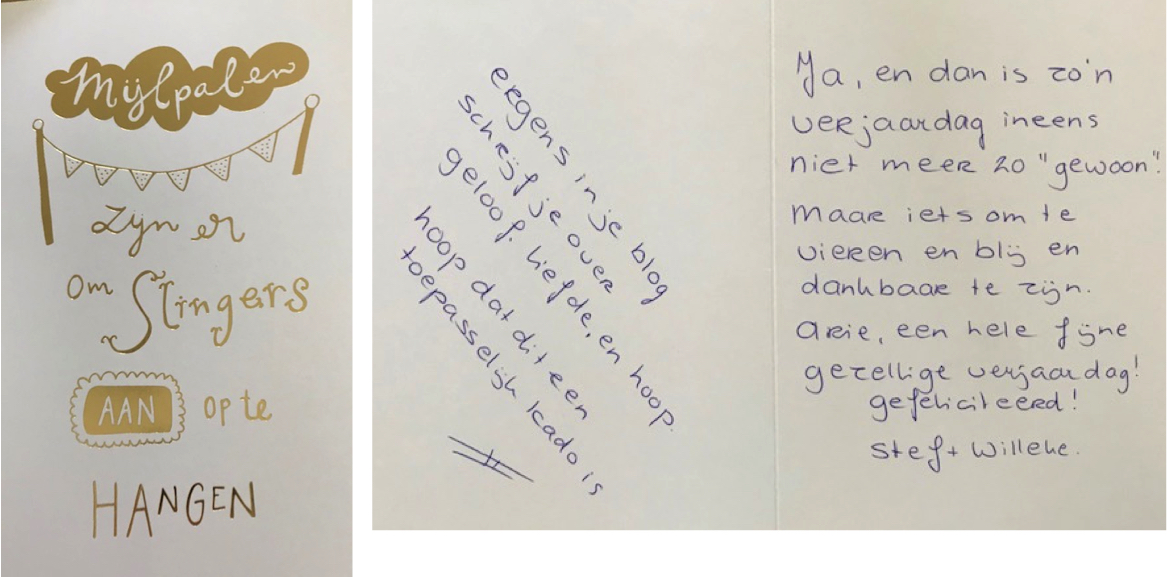 Mijlpalen
zijn er
om Slingers
AAN op te
HANGEN
ergens in je blog
schrijf je over
geloof, liefde, en hoop.
hoop dat dit een
toepasselijk kado is
Ja, en dan is zo'n
verjaardag ineens
niet meer zo "gewoon".
maar iets om te
vieren en blij en
dankbaar te zijn.
Arie, een hele fijne
gezellige verjaardag!
gefeliciteerd!
Stef + Willeke.